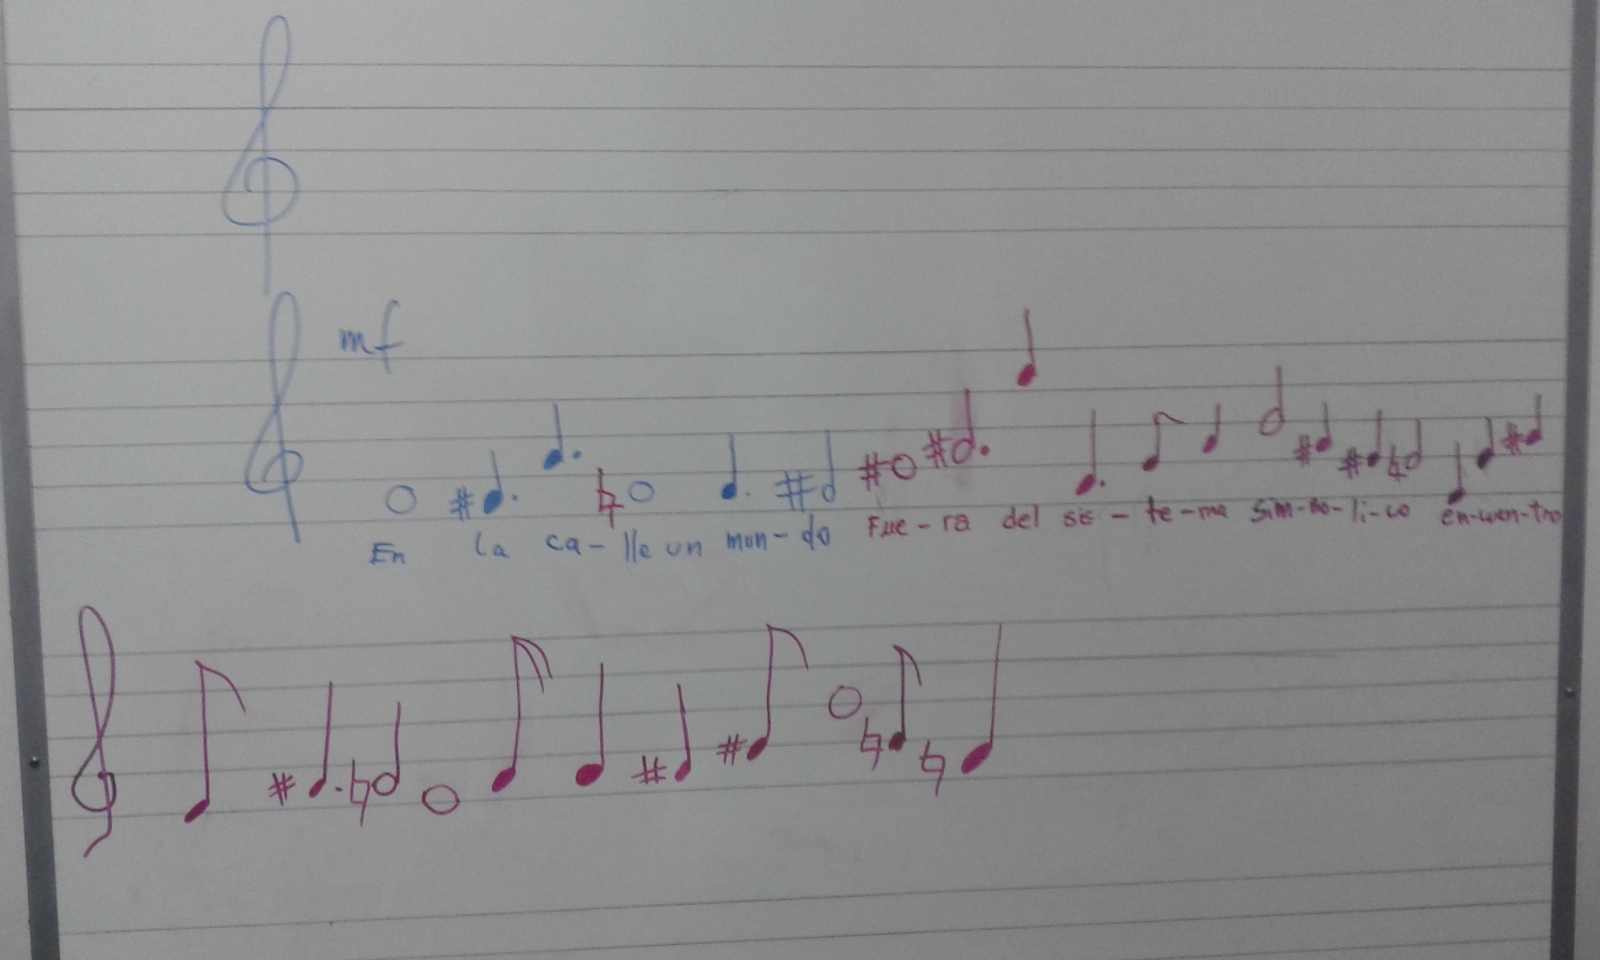 mf
En la ca-lle un mun-do Fue-ra del sis-te-ma Sim-bo-li-co en-cuen-tro